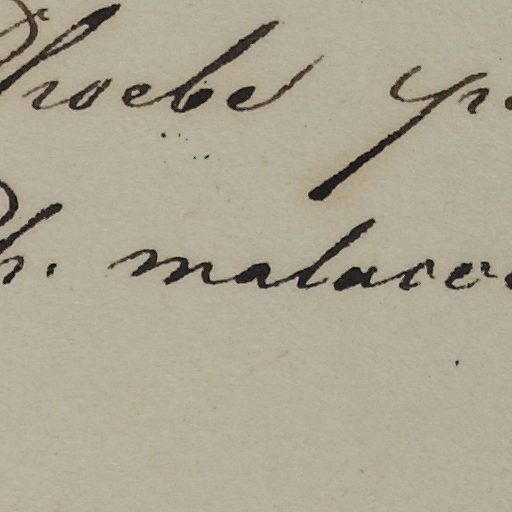 Phoebe
Ph. malaco